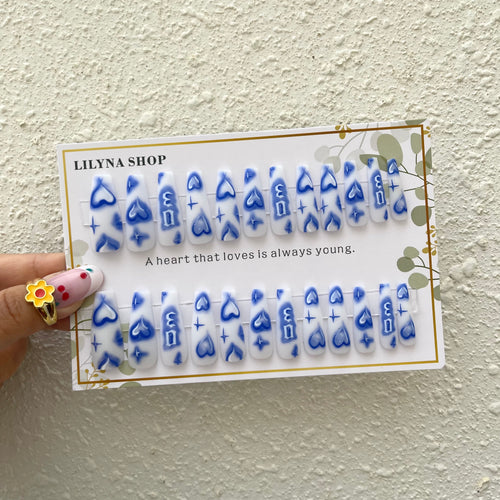 LILYNA SHOP
A heart that loves is always young.